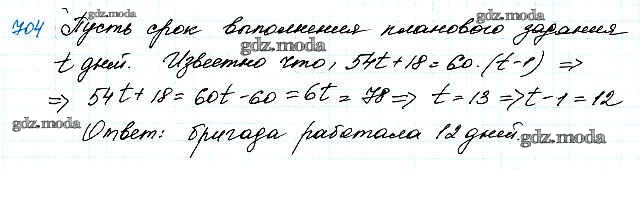 704 Пусть срок выполнения планового задания
t дней. Известно что, 54t+18=60·(t-1) =>
=> 54t+18=60t-60=6t=78=> t=13=>t-1=12
Ответ: бригада работала 12 дней.
gdz.moda
gdz.moda
gdz.moda
gdz.moda
gdz.moda
gdz.moda
gdz.moda